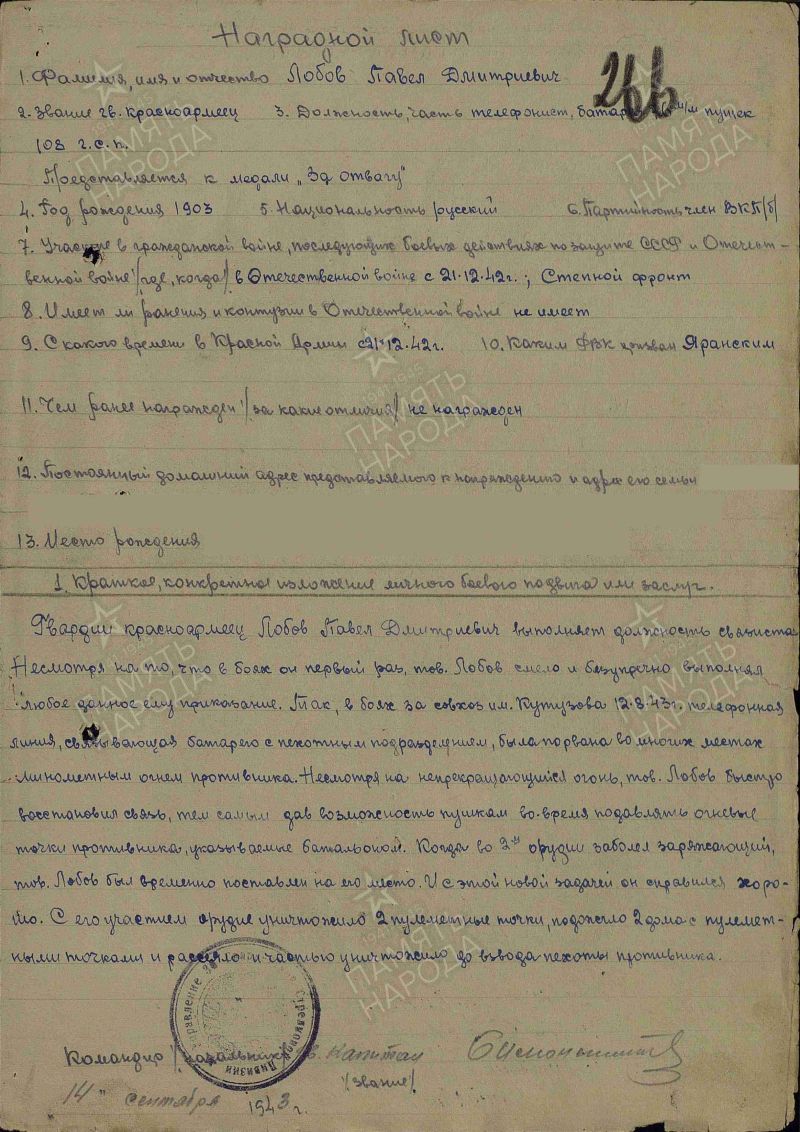 Наградной лист
266
1. Фамилия, имя и отчество Лобов Павел Дмитриевич
2. Звание гв. красноармеец 3. Должность, часть телефонист, батарея м/м пушек
108 г.с.п.
Представляется к медали „За отвагу"
4. Год рождения 1903 5. Национальность русский 6. Партийность член ВКП/б/
7. Участие в гражданской войне, последующих боевых действиях по защите СССР и Отечест-
венной войне /где, когда/ в Отечественной войне с 21.12.42г.; Степной фронт
8. Имеет ли ранения и контузии в Отечественной войне не имеет
9. С какого времени в Красной Армии с 21.12.42г. 10. Каким РВК призван Яранским
11. Чем ранее награжден /за какие отличия/ не награжден
12. Постоянный домашний адрес представляемого к награждению и адрес его семьи
13. Место рождения
1. Краткое, конкретное изложение личного боевого подвига или заслуг.
Гвардии красноармеец Лобов Павел Дмитриевич выполняет должность связиста.
Несмотря на то, что в боях он первый раз, тов. Лобов смело и безупречно выполнял
любое данное ему приказание. Так, в боях за совхоз им. Кутузова 12.8.43г. телефонная
линия, связывающая батарею с пехотным подразделением, была порвана во многих местах
минометным огнем противника. Несмотря на непрекращающийся огонь, тов. Лобов быстро
восстановил связь, тем самым дав возможность пушкам во-время подавлять огневые
точки противника, указываемые батальоном. Когда во 2-м орудии заболел заряжающий,
тов. Лобов был временно поставлен на его место. И с этой новой задачей он справился хоро-
шо. С его участием орудие уничтожило 2 пулеметные точки, подожгло 2 дома с пулемет-
ными точками и рассеяло и частью уничтожило до взвода пехоты противника.
Управление Стрелковой Дивизии
Командир /начальник/ гв. капитан
/звание/
14" сентября 1943 г.
ПАМЯТЬ НАРОДА